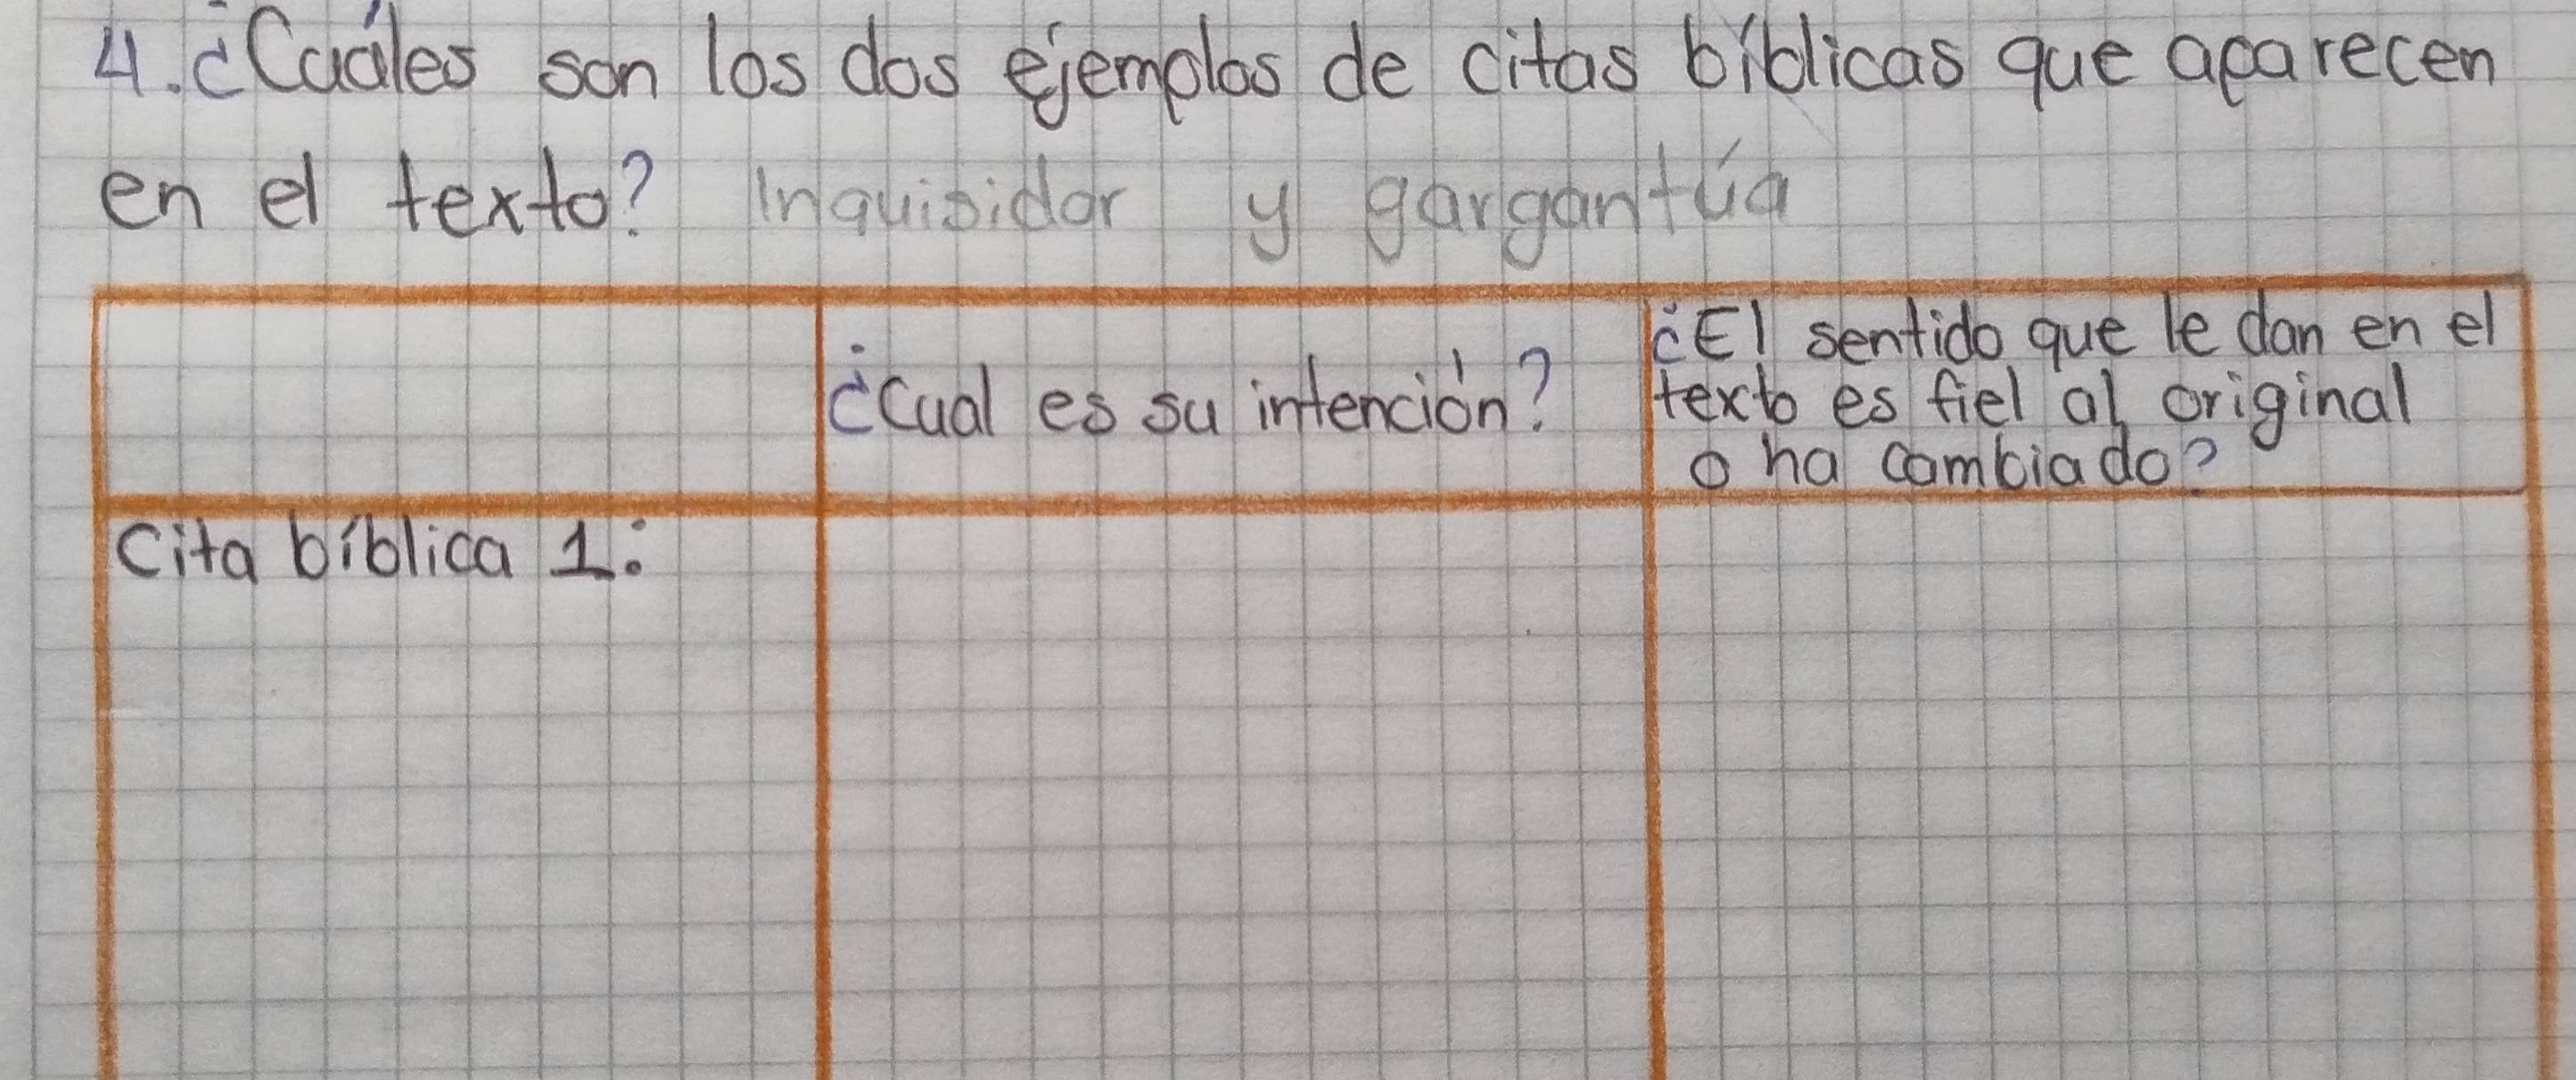 4. ¿Cuáles son los dos ejemplos de citas bíblicas que aparecen
en el texto? Inquisidor y gargantúa
¿Cual es su intención?
¿El sentido que le dan en el
texto es fiel al original
o ha cambiado?
Cita bíblica 1: